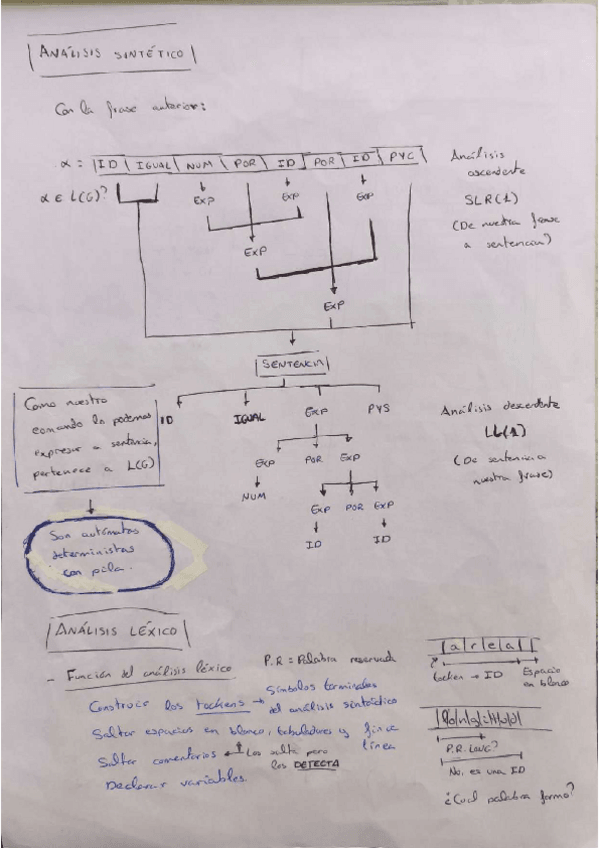 ANÁLISIS SINTÉTICO
Con la frase anterior:
α = ID IGUAL NUM POR ID POR ID PYC
α ∈ L(G)?
EXP EXP EXP
EXP
EXP
Análisis
ascendente
SLR(1)
(De nuestra frase
a sentencia)
SENTENCIA
ID IGUAL EXP PYS
EXP POR EXP
NUM
EXP POR EXP
ID ID
Análisis descendente
LL(1)
(De sentencia a
nuestra frase)
Como nuestro
comando lo podemos
expresar a sentencia,
pertenece a L(G)
Son autómatas
deterministas
con pila.
ANÁLISIS LÉXICO
- Función del análisis léxico
P.R = Palabra reservada
Construce los tockens → Símbolos terminales
del análisis sintáctico
Saltar espacios en blanco, tabuladores y fin de
línea
Saltar comentarios ← Los salta pero
los DETECTA
Declarar variables.
a r e a
tocken → ID
Espacio
en blanco
P.R. LONG?
No, es una ID
¿Cual palabra formo?